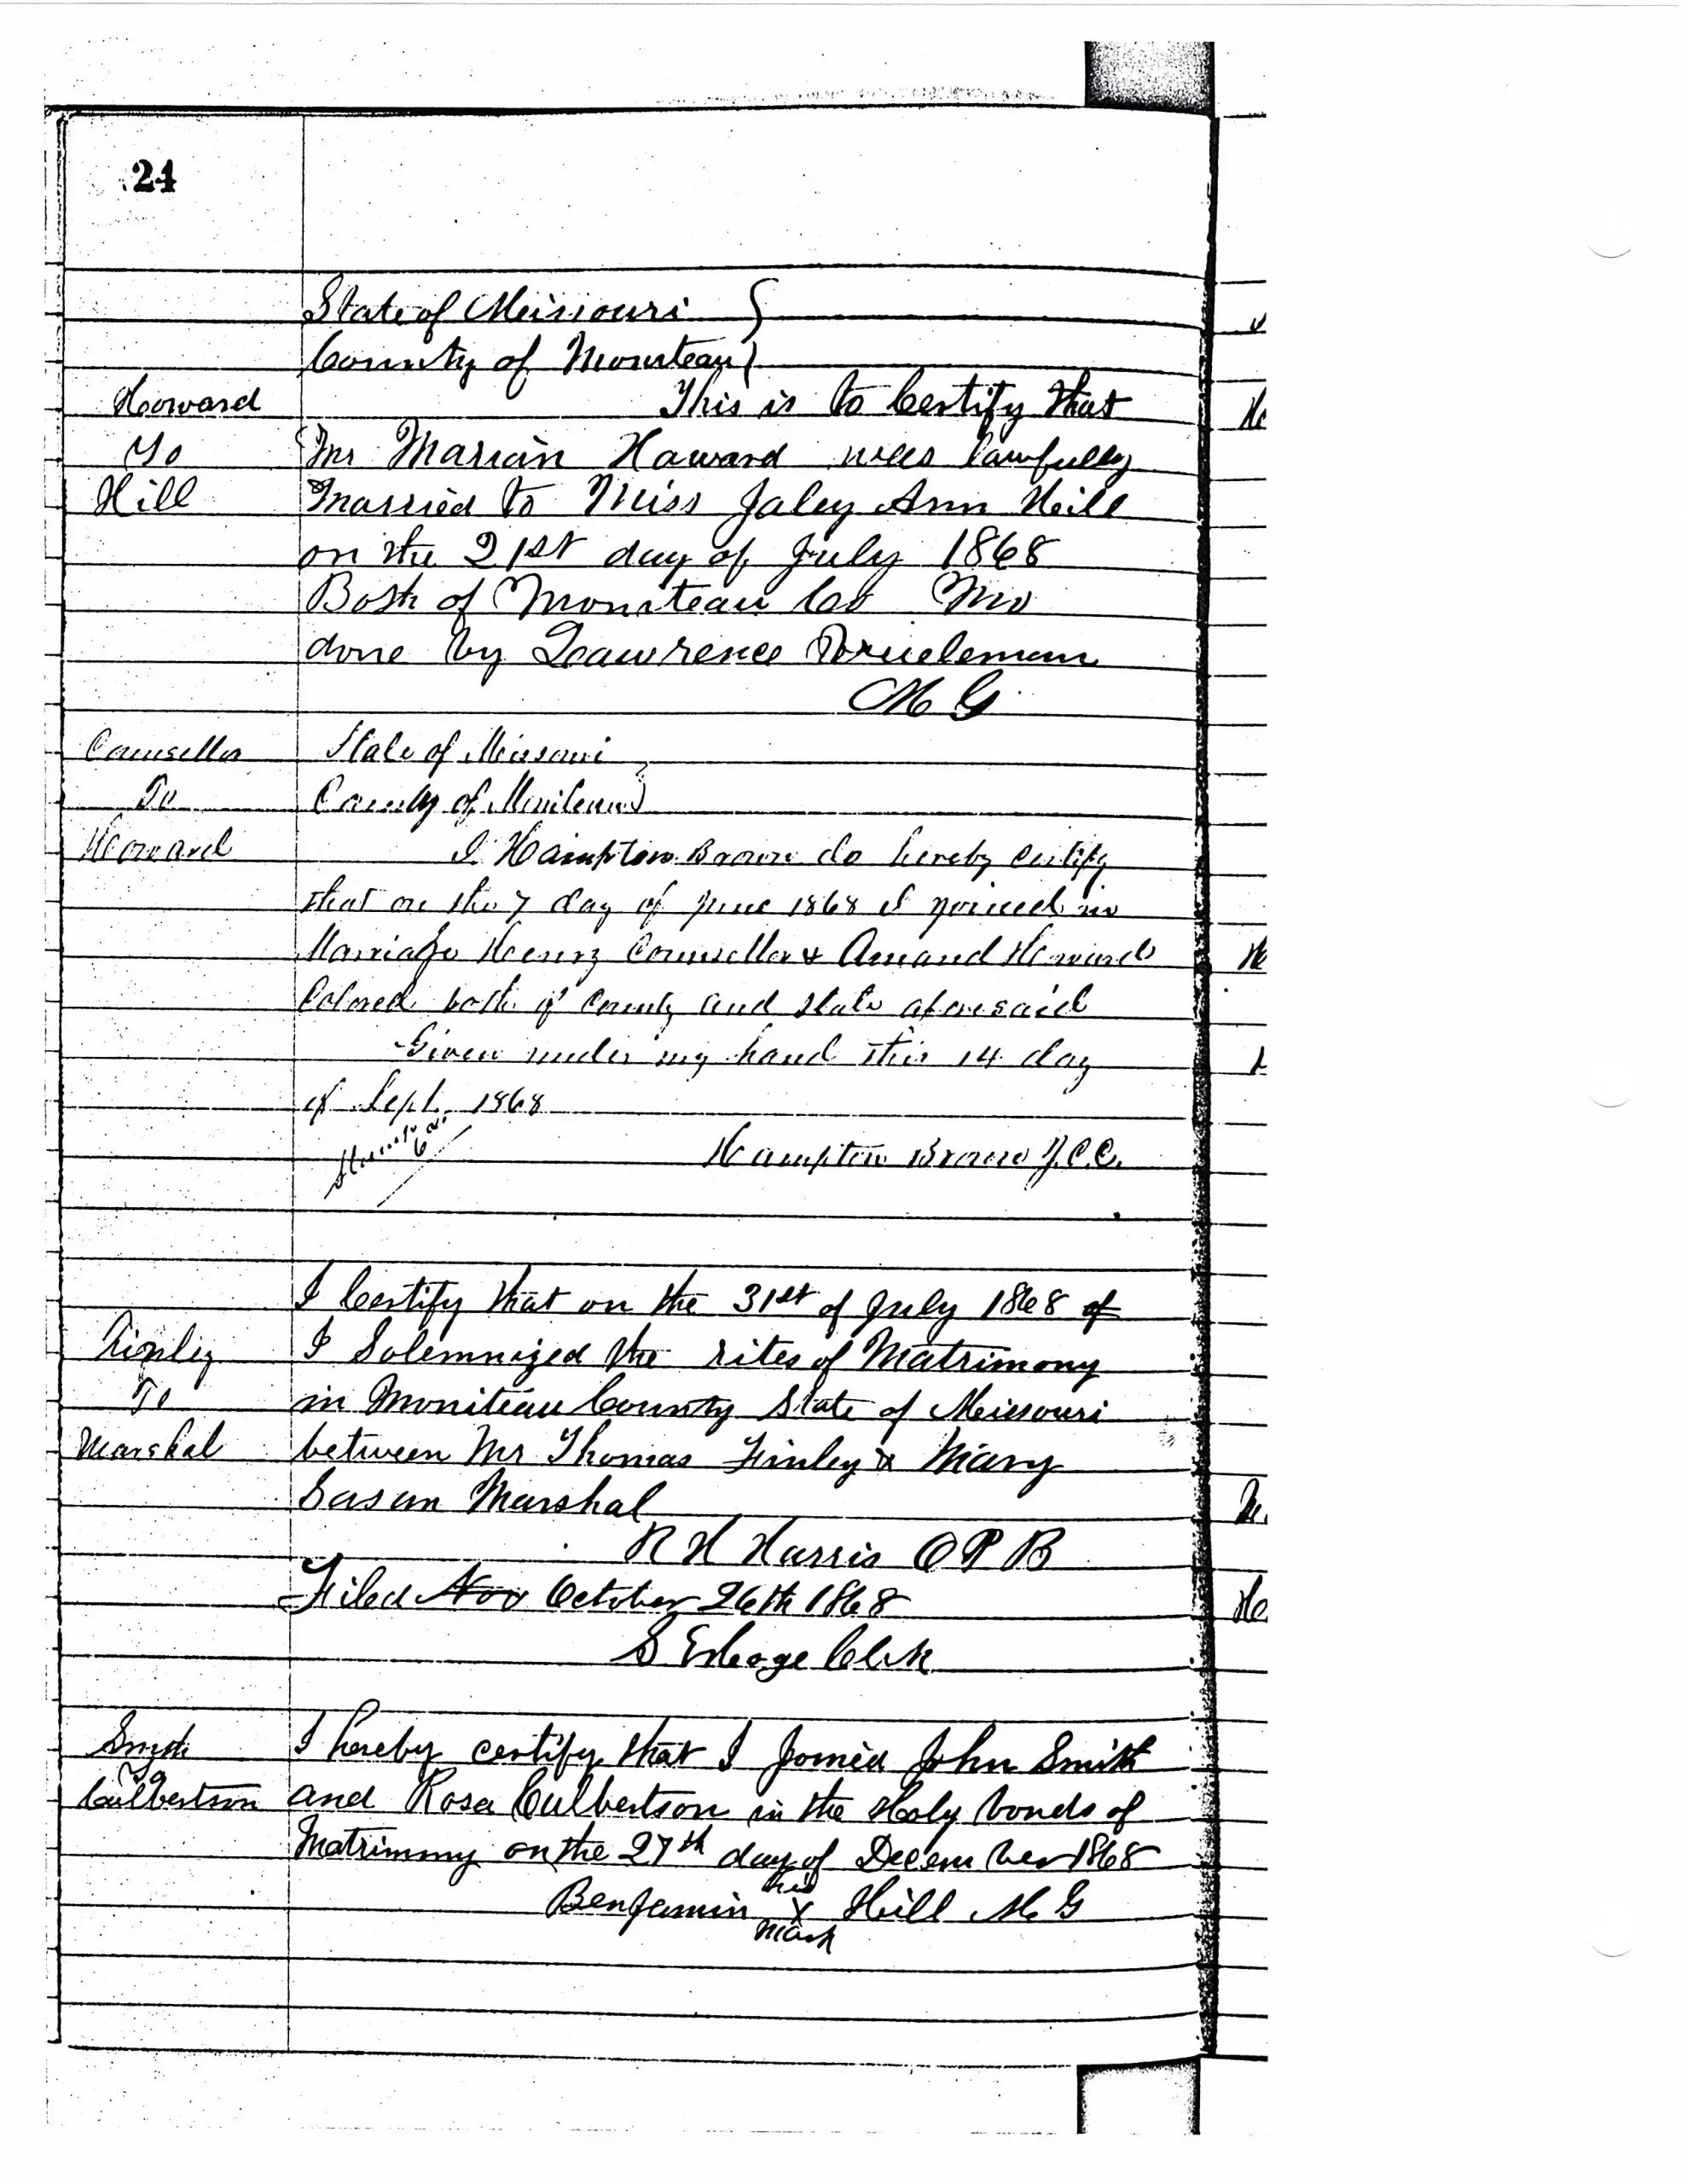 24
State of Missouri
County of Moniteau
Howard This is to Certify that
To Mr Marian Howard was lawfully
Hill Married to Miss Jaley Ann Hill
on the 21st day of July 1868
Both of Moniteau Co Mo
done by Lawrence
M G
Counsellor State of Missouri
To County of Moniteau
Howard I Hampton Brown do hereby certify
that on the 7 day of June 1868 I joined in
Marriage Henry Counsellor & Amand Howard
Colored both of County and State aforesaid
Given under my hand this 14 day
of Sept. 1868
Hampton Brown J.C.C.
I Certify that on the 31st of July 1868 of
Finley I Solemnized the rites of Matrimony
To in Moniteau County State of Missouri
Marshal between Mr Thomas Finley & Mary
Susan Marshal
R H Harris O P B
Filed Nov October 26th 1868
Clerk
Smith I hereby certify that I Joined John Smith
To
Culbertson and Rosa Culbertson in the Holy bonds of
Matrimmy on the 27th day of December 1868
his
Benjamin X Hill M G
mark